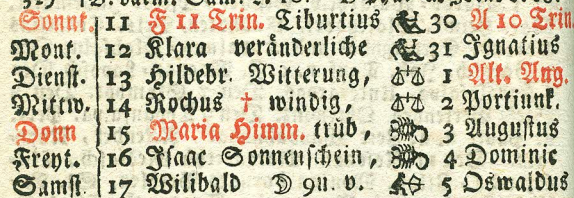 Sonnt. 11 F 11 Trin. Tiburtius 30 A 10 Trin
Mont. 12 Klara veränderliche 31 Ignatius
Dienst. 13 Hildebr. Witterung, 1 Alt. Aug.
Mittw. 14 Rochus † windig, 2 Portiunk.
Donn 15 Maria Himm. trüb, 3 Augustus
Freyt. 16 Isaac Sonnenschein, 4 Dominic
Samst. 17 Wilibald ☽ 9u. v. 5 Oswaldus